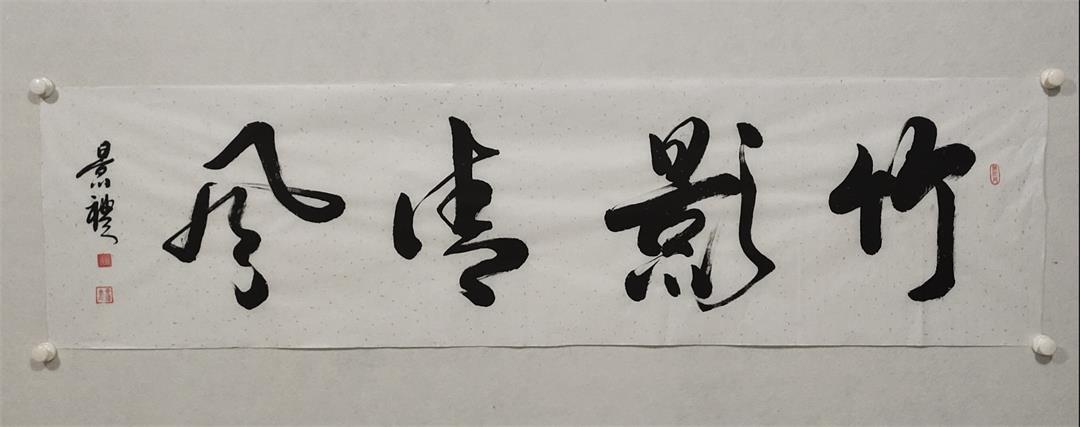 竹影清風
景禮